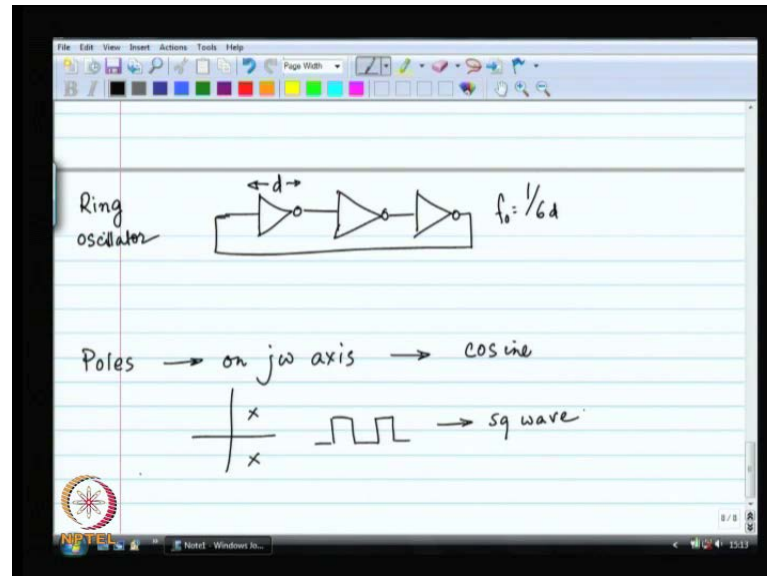 File Edit View Insert Actions Tools Help
Page Width
B I
← d →
Ring
oscillator
f₀ = 1/6d
Poles → on jω axis → cosine
x
→ sq wave
x
8/8
NPTEL
Note1 - Windows Jo...
15:13